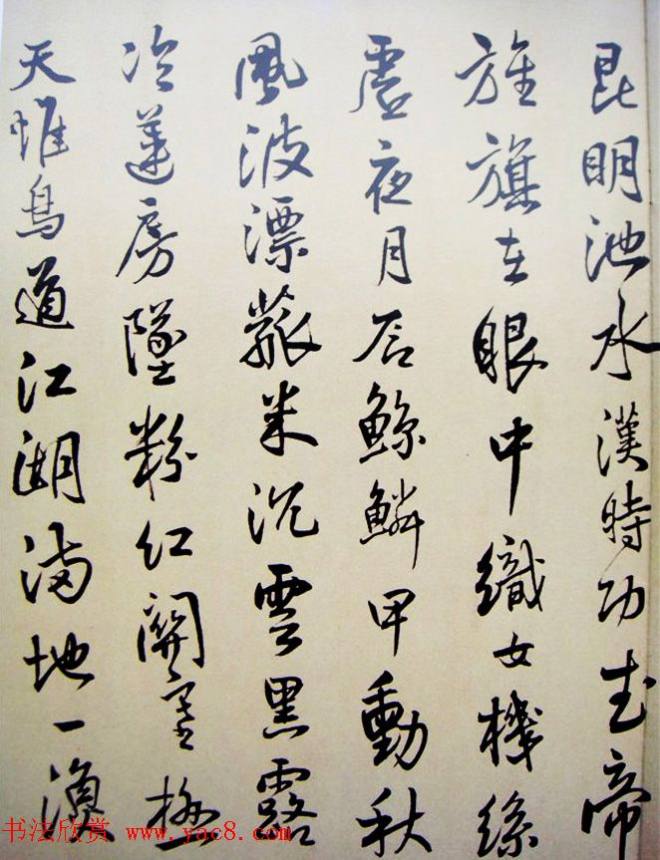 昆明池水漢時功武帝
旌旗在眼中織女機絲
虛夜月石鯨鱗甲動秋
風波漂菰米沉雲黑露
冷蓮房墜粉紅關塞極
天惟鳥道江湖滿地一漁
书法欣赏 www.yac8.com